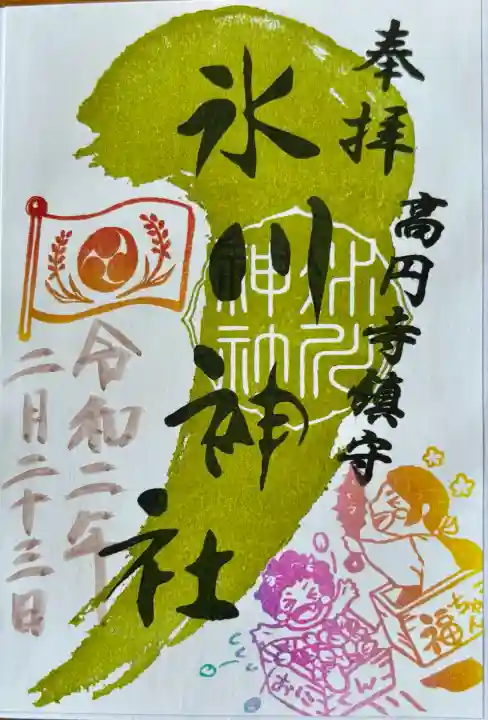 奉拝
高円寺鎮守
氷川神社
氷川
神社
令和二年
二月二十三日
福
ちゃん
おに